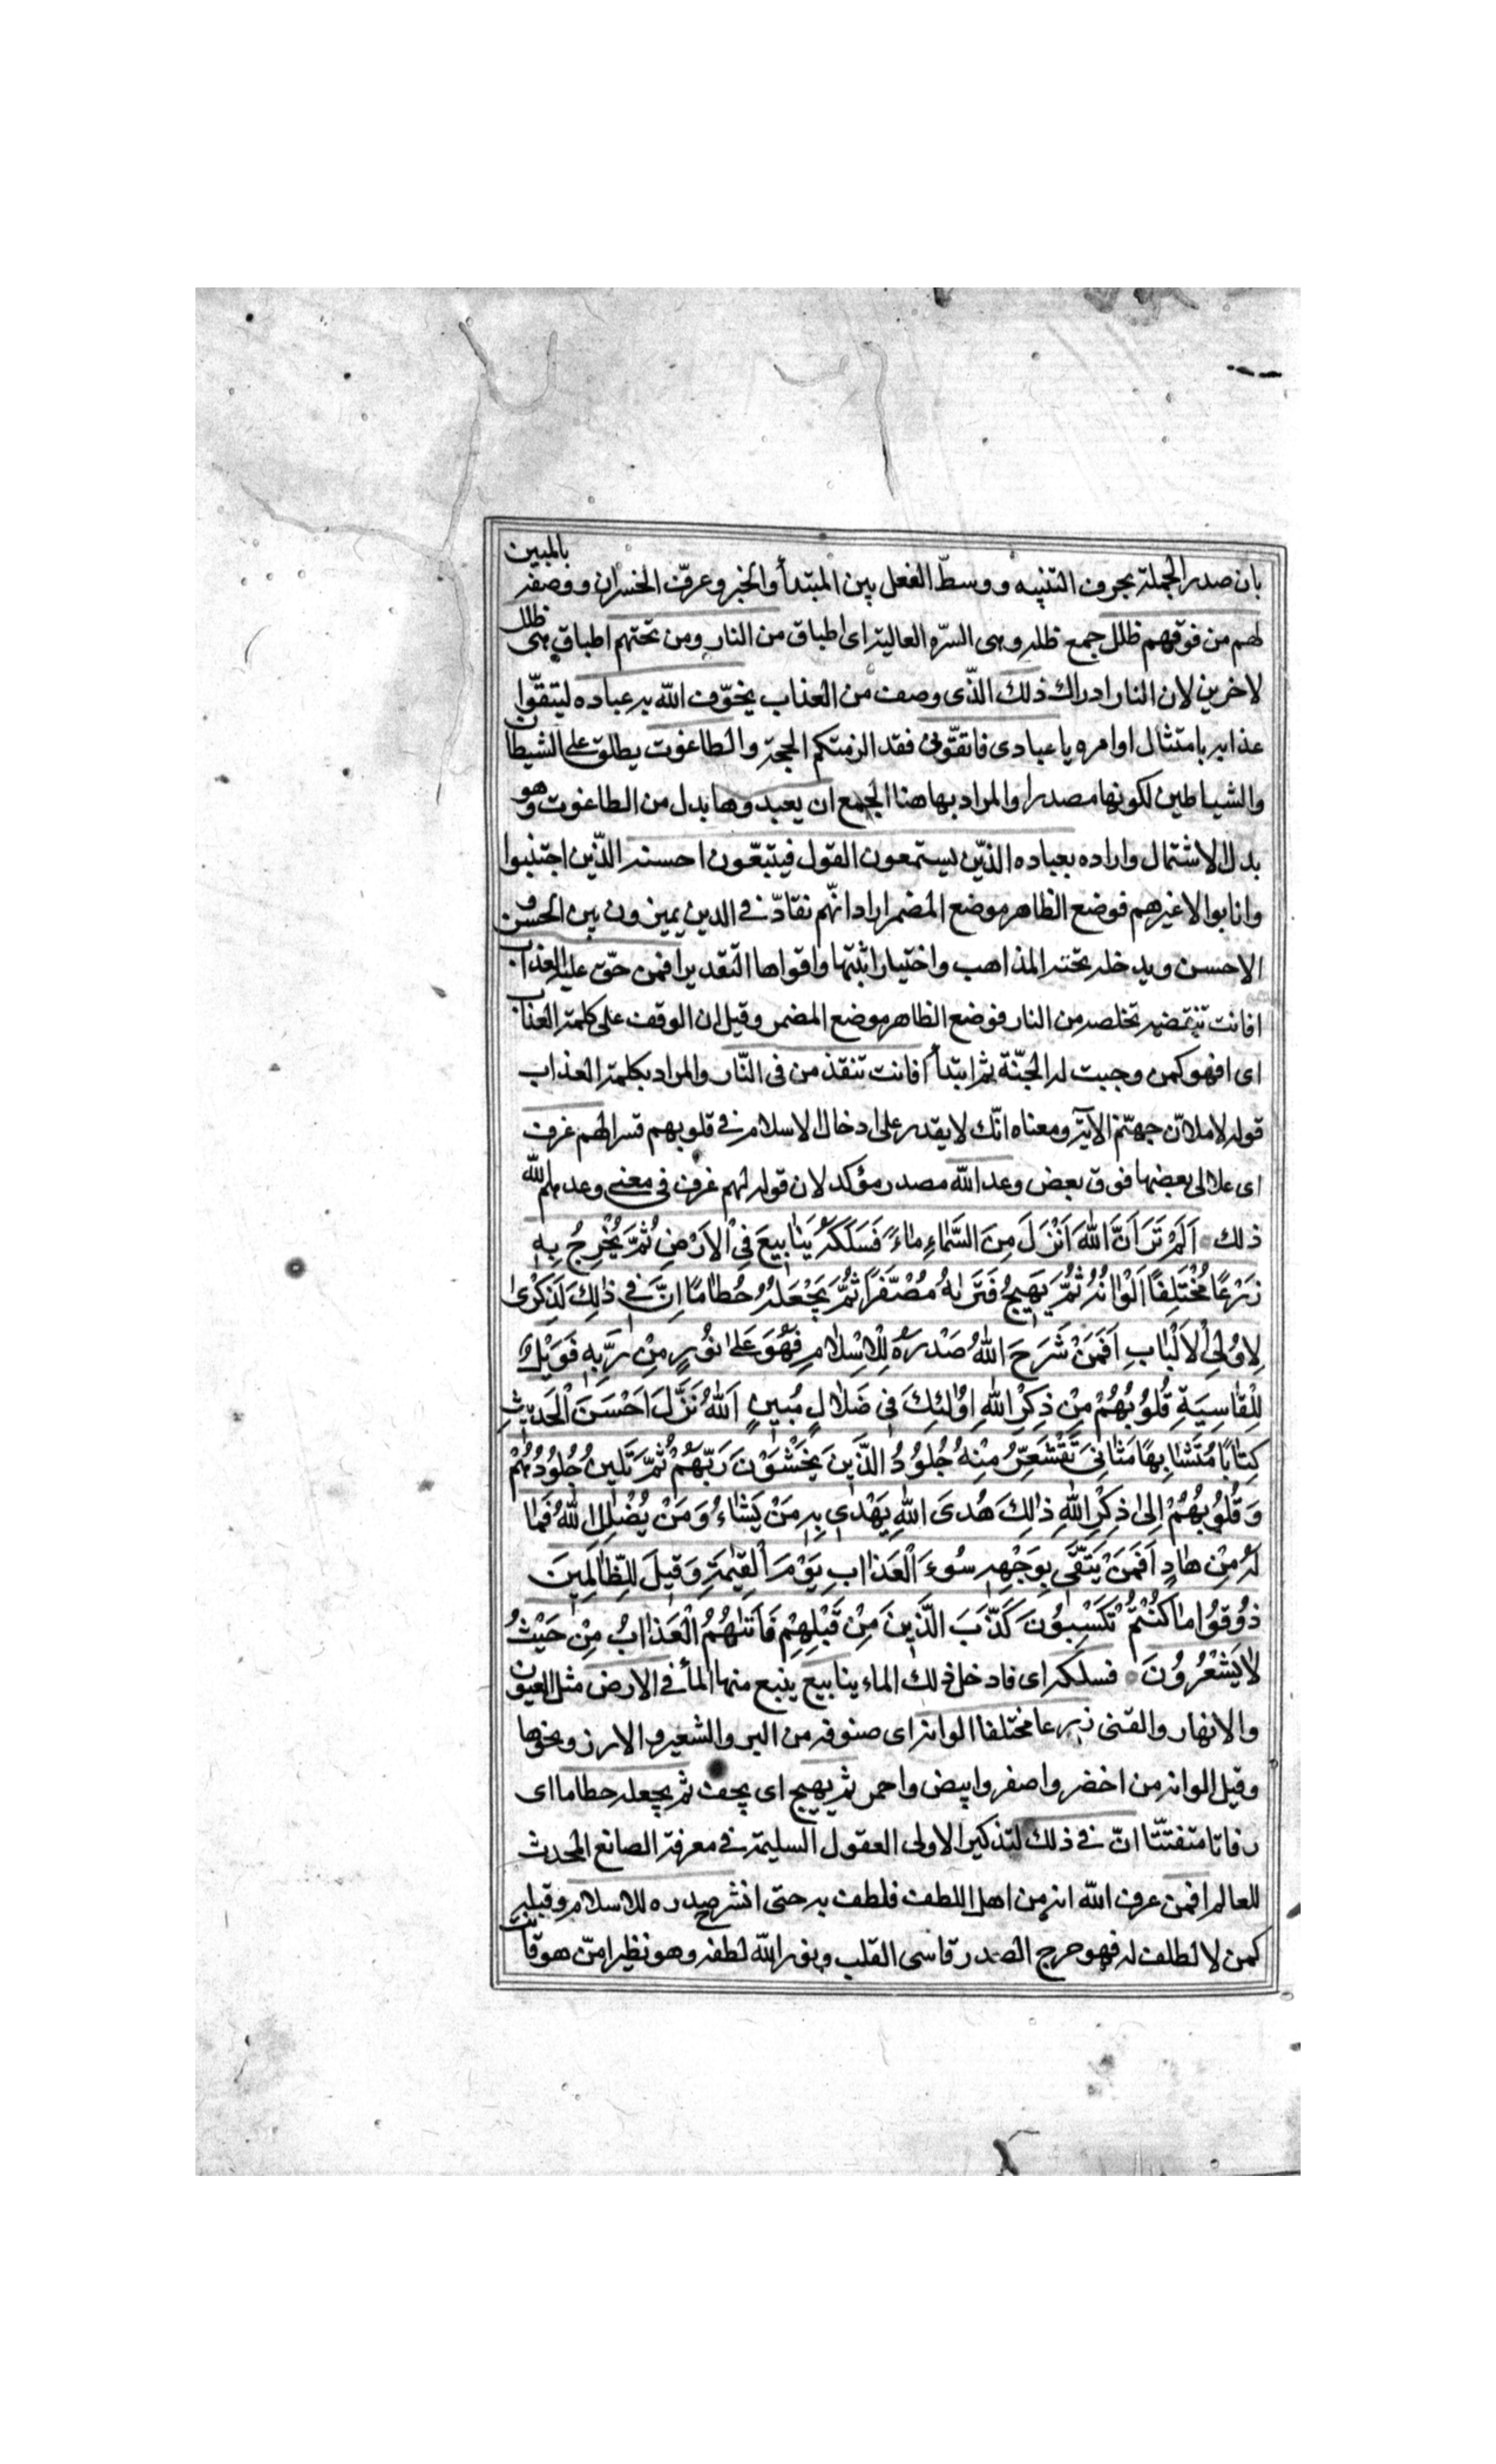 بان صدر الجملة بحرف التنبيه ووسطّ الفعل بين المبتدأ والخبر وعرفّ الخسران ووصفه بالمبين
لهم من فوقهم ظلل جمع ظله وهى السرّه العالية اى اطباق من النار ومن تحتهم اطباق هى ظلل
لاخرين لان النار ادراك ذلك الذّى وصف من العذاب يخوّف الله به عباده ليتقّوا
عذابه بامتثال اوامره يا عبادى فاتقّون فقد الزمتكم الحجة والطاغوت يطلق على الشيطان
والشياطين لكونها مصدرا والمراد بها هنا الجمع ان يعبدوها بدل من الطاغوت وهو
بدل الاشتمال واراده بعباده الذيّن يستمعون القول فيتبعّون احسنه الذّين اجتنبوا
وانابوا لا غيرهم فوضع الظاهر موضع المضمر اراد انهّم نقادّ فى الدين يميزون بين الحسن و
الاحسن ويدخله تحته المذاهب واختيار اثبتها واقواها التقدير افمن حقّ عليه العذاب
افانت تخلصه من النار فوضع الظاهر موضع المضمر وقيل ان الوقف على كلمة العذاب
اى افهو كمن وجبت له الجنّة ثم ابتدأ افانت تنقذ من فى النّار والمراد بكلمة العذاب
قوله لاملانّ جهنّم الآية ومعناه انّك لا يقدر على ادخال الاسلام فى قلوبهم قسرا لهم غرف
اى علالى بعضها فوق بعض وعد الله مصدر مؤكد لان قوله لهم غرف فى معنى وعدهم الله
ذلك اَلَمْ تَرَ اَنَّ اللهَ اَنْزَلَ مِنَ السَّمَاءِ مَاءً فَسَلَكَهُ يَنَابِيعَ فِى الْاَرْضِ ثُمَّ يُخْرِجُ بِهِ
زَرْعًا مُخْتَلِفًا اَلْوَانُهُ ثُمَّ يَهِيجُ فَتَرَاهُ مُصْفَرًّا ثُمَّ يَجْعَلُهُ حُطَامًا اِنَّ فِى ذٰلِكَ لَذِكْرىٰ
لِاُولِى الْاَلْبَابِ اَفَمَنْ شَرَحَ اللهُ صَدْرَهُ لِلْاِسْلَامِ فَهُوَ عَلىٰ نُورٍ مِنْ رَبِّهِ فَوَيْلٌ
لِلْقَاسِيَةِ قُلُوبُهُمْ مِنْ ذِكْرِ اللهِ اُولٰئِكَ فِى ضَلَالٍ مُبِينٍ اَللهُ نَزَّلَ اَحْسَنَ الْحَدِيثِ
كِتَابًا مُتَشَابِهًا مَثَانِىَ تَقْشَعِرُّ مِنْهُ جُلُودُ الَّذِينَ يَخْشَوْنَ رَبَّهُمْ ثُمَّ تَلِينُ جُلُودُهُمْ
وَقُلُوبُهُمْ اِلىٰ ذِكْرِ اللهِ ذٰلِكَ هُدَى اللهِ يَهْدِى بِهِ مَنْ يَشَاءُ وَمَنْ يُضْلِلِ اللهُ فَمَا
لَهُ مِنْ هَادٍ اَفَمَنْ يَتَّقِى بِوَجْهِهِ سُوءَ الْعَذَابِ يَوْمَ الْقِيٰمَةِ وَقِيلَ لِلظَّالِمِينَ
ذُوقُوا مَا كُنْتُمْ تَكْسِبُونَ كَذَّبَ الَّذِينَ مِنْ قَبْلِهِمْ فَاَتٰيهُمُ الْعَذَابُ مِنْ حَيْثُ
لَا يَشْعُرُونَ فسلكه اى فادخل ذلك الماء ينابيع ينبع منها المأ فى الارض مثل العيون
والانهار والقنى زرعا مختلفا الوانه اى صنوفه من البر والشعير والارز ونحوها
وقيل الوانه من اخضر واصفر وابيض واحمر ثم يهيج اى يجف ثم يجعله حطاما اى
رفاتا متفتتّا انّ فى ذلك لتذكيرا لاولى العقول السليمة فى معرفة الصانع المحدث
للعالم افمن عرف الله انه من اهل اللطف فلطف به حتى انشرح صدره للاسلام وقبله
كمن لا لطلف له فهو حرج الصدر قاسى القلب ونور الله لطفه وهو نظير امنّ هو قانت